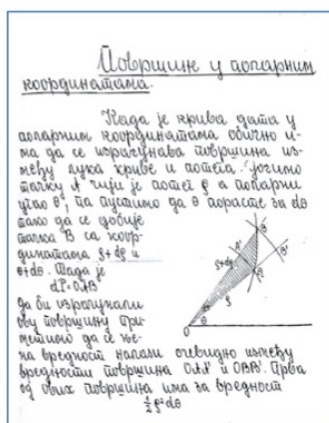 Површине у поларним
координатама.
Када је крива дата у
поларним координатама обично и-
ма да се израчунава површина из-
међу лука криве и потега. Уочимо
тачку A чији је потег ρ а поларни
угао θ, па пустимо да θ порасте за dθ
тако да се добије
тачка B са коор-
динатама ρ+dρ и
θ+dθ. Тада је
dP=OAB
да би израчунали
ову површину при-
метимо да се ње-
на вредност налази очевидно између
вредности површина OAA' и OBB'. Прва
од ових површина има за вредност
½ρ²dθ
B
A'
B'
A
ρ+dρ
ρ
dθ
θ
O